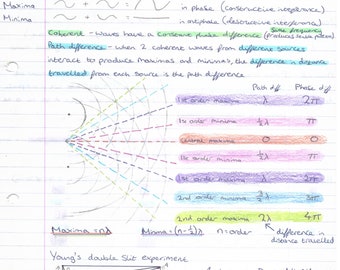 Maxima + = in phase (constructive interference)
Minima + = in antiphase (destructive interference)
Same frequency
Coherent - waves have a constant phase difference (produces stable pattern)
Path difference - when 2 coherent waves from different sources
interact to produce maximas and minimas, the difference in distance
travelled from each source is the path difference
Path diff Phase diff
1st order maxima λ 2π
1st order minima ½λ π
Central maxima 0 0
1st order minima ½λ π
1st order maxima λ 2π
2nd order minima 3/2 λ 3π
2nd order maxima 2λ 4π
Maxima = nλ Minima = (n-½)λ n = order
difference in
distance travelled
Young's double slit experiment